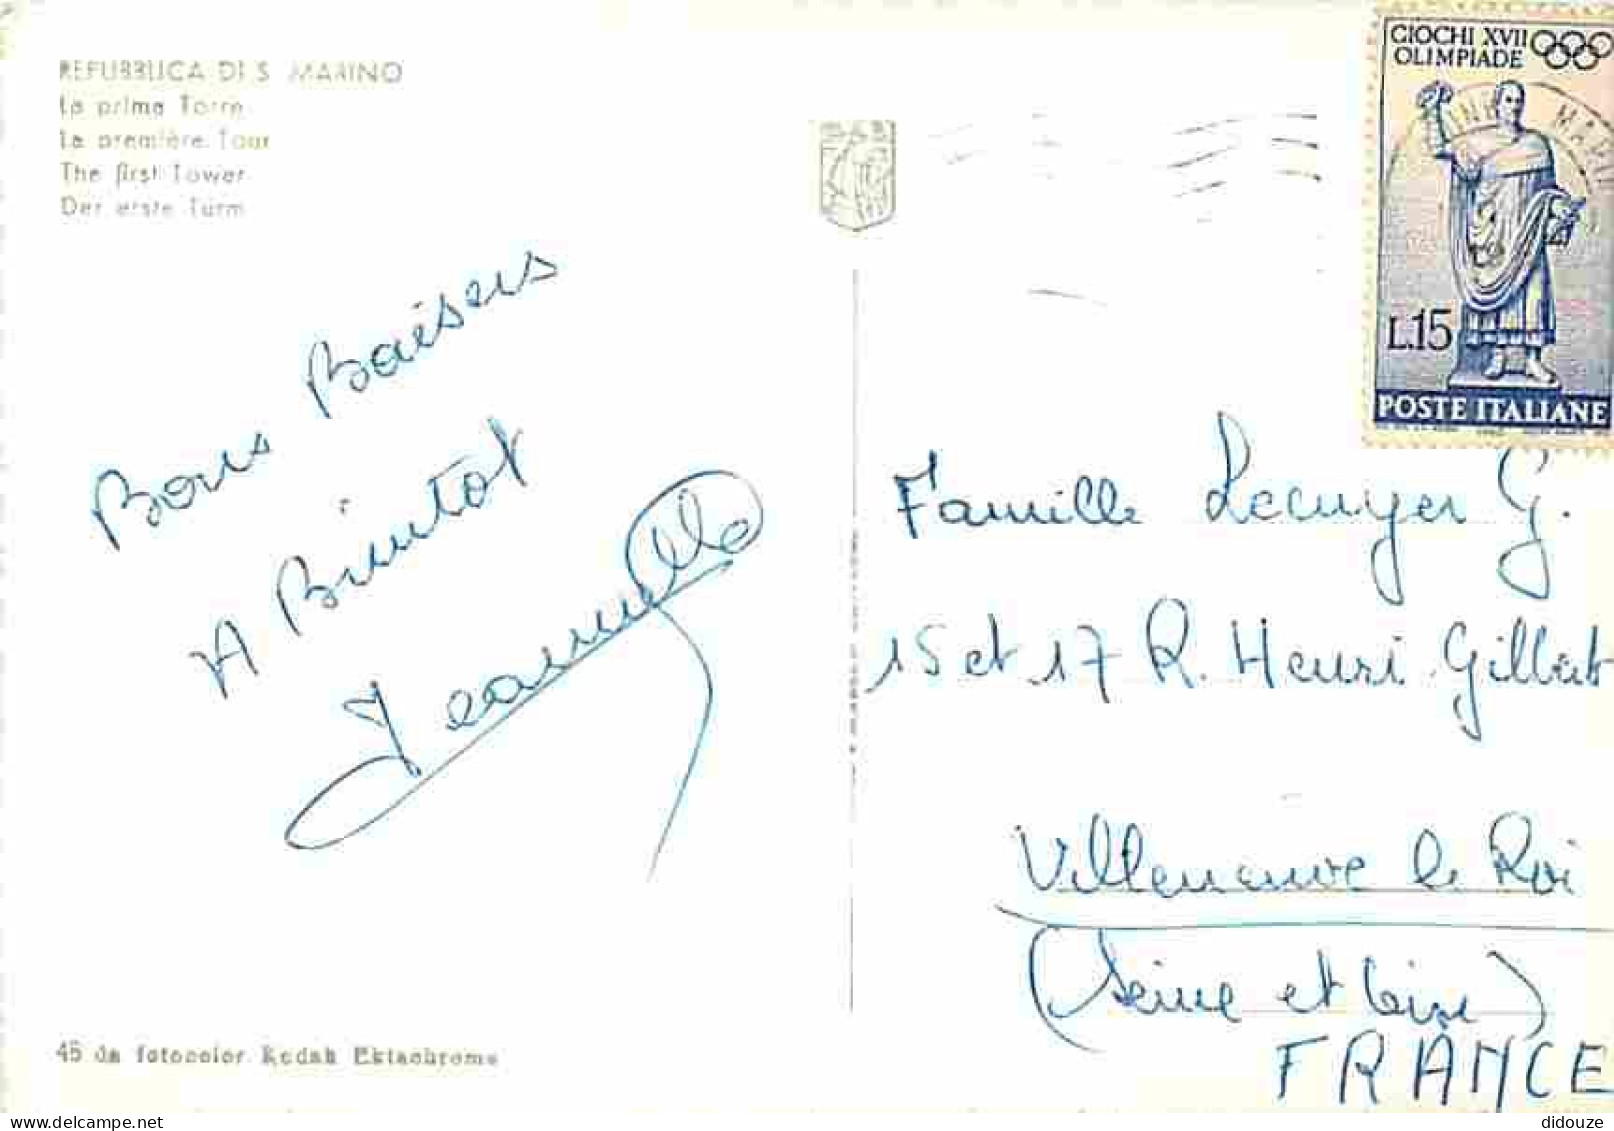 REPUBBLICA DI S. MARINO
La prima Torre
La première Tour
The first Tower
Der erste Turm
Bons Baisers
A Bientot
GIOCHI XVII
OLIMPIADE
L.15
POSTE ITALIANE
Famille Lecuyer G.
15 et 17 R. Henri Gilbert
Villeneuve le Roi
(Seine et Oise)
FRANCE
45 da fotocolor Kodak Ektachrome
delcampe.net
didouze